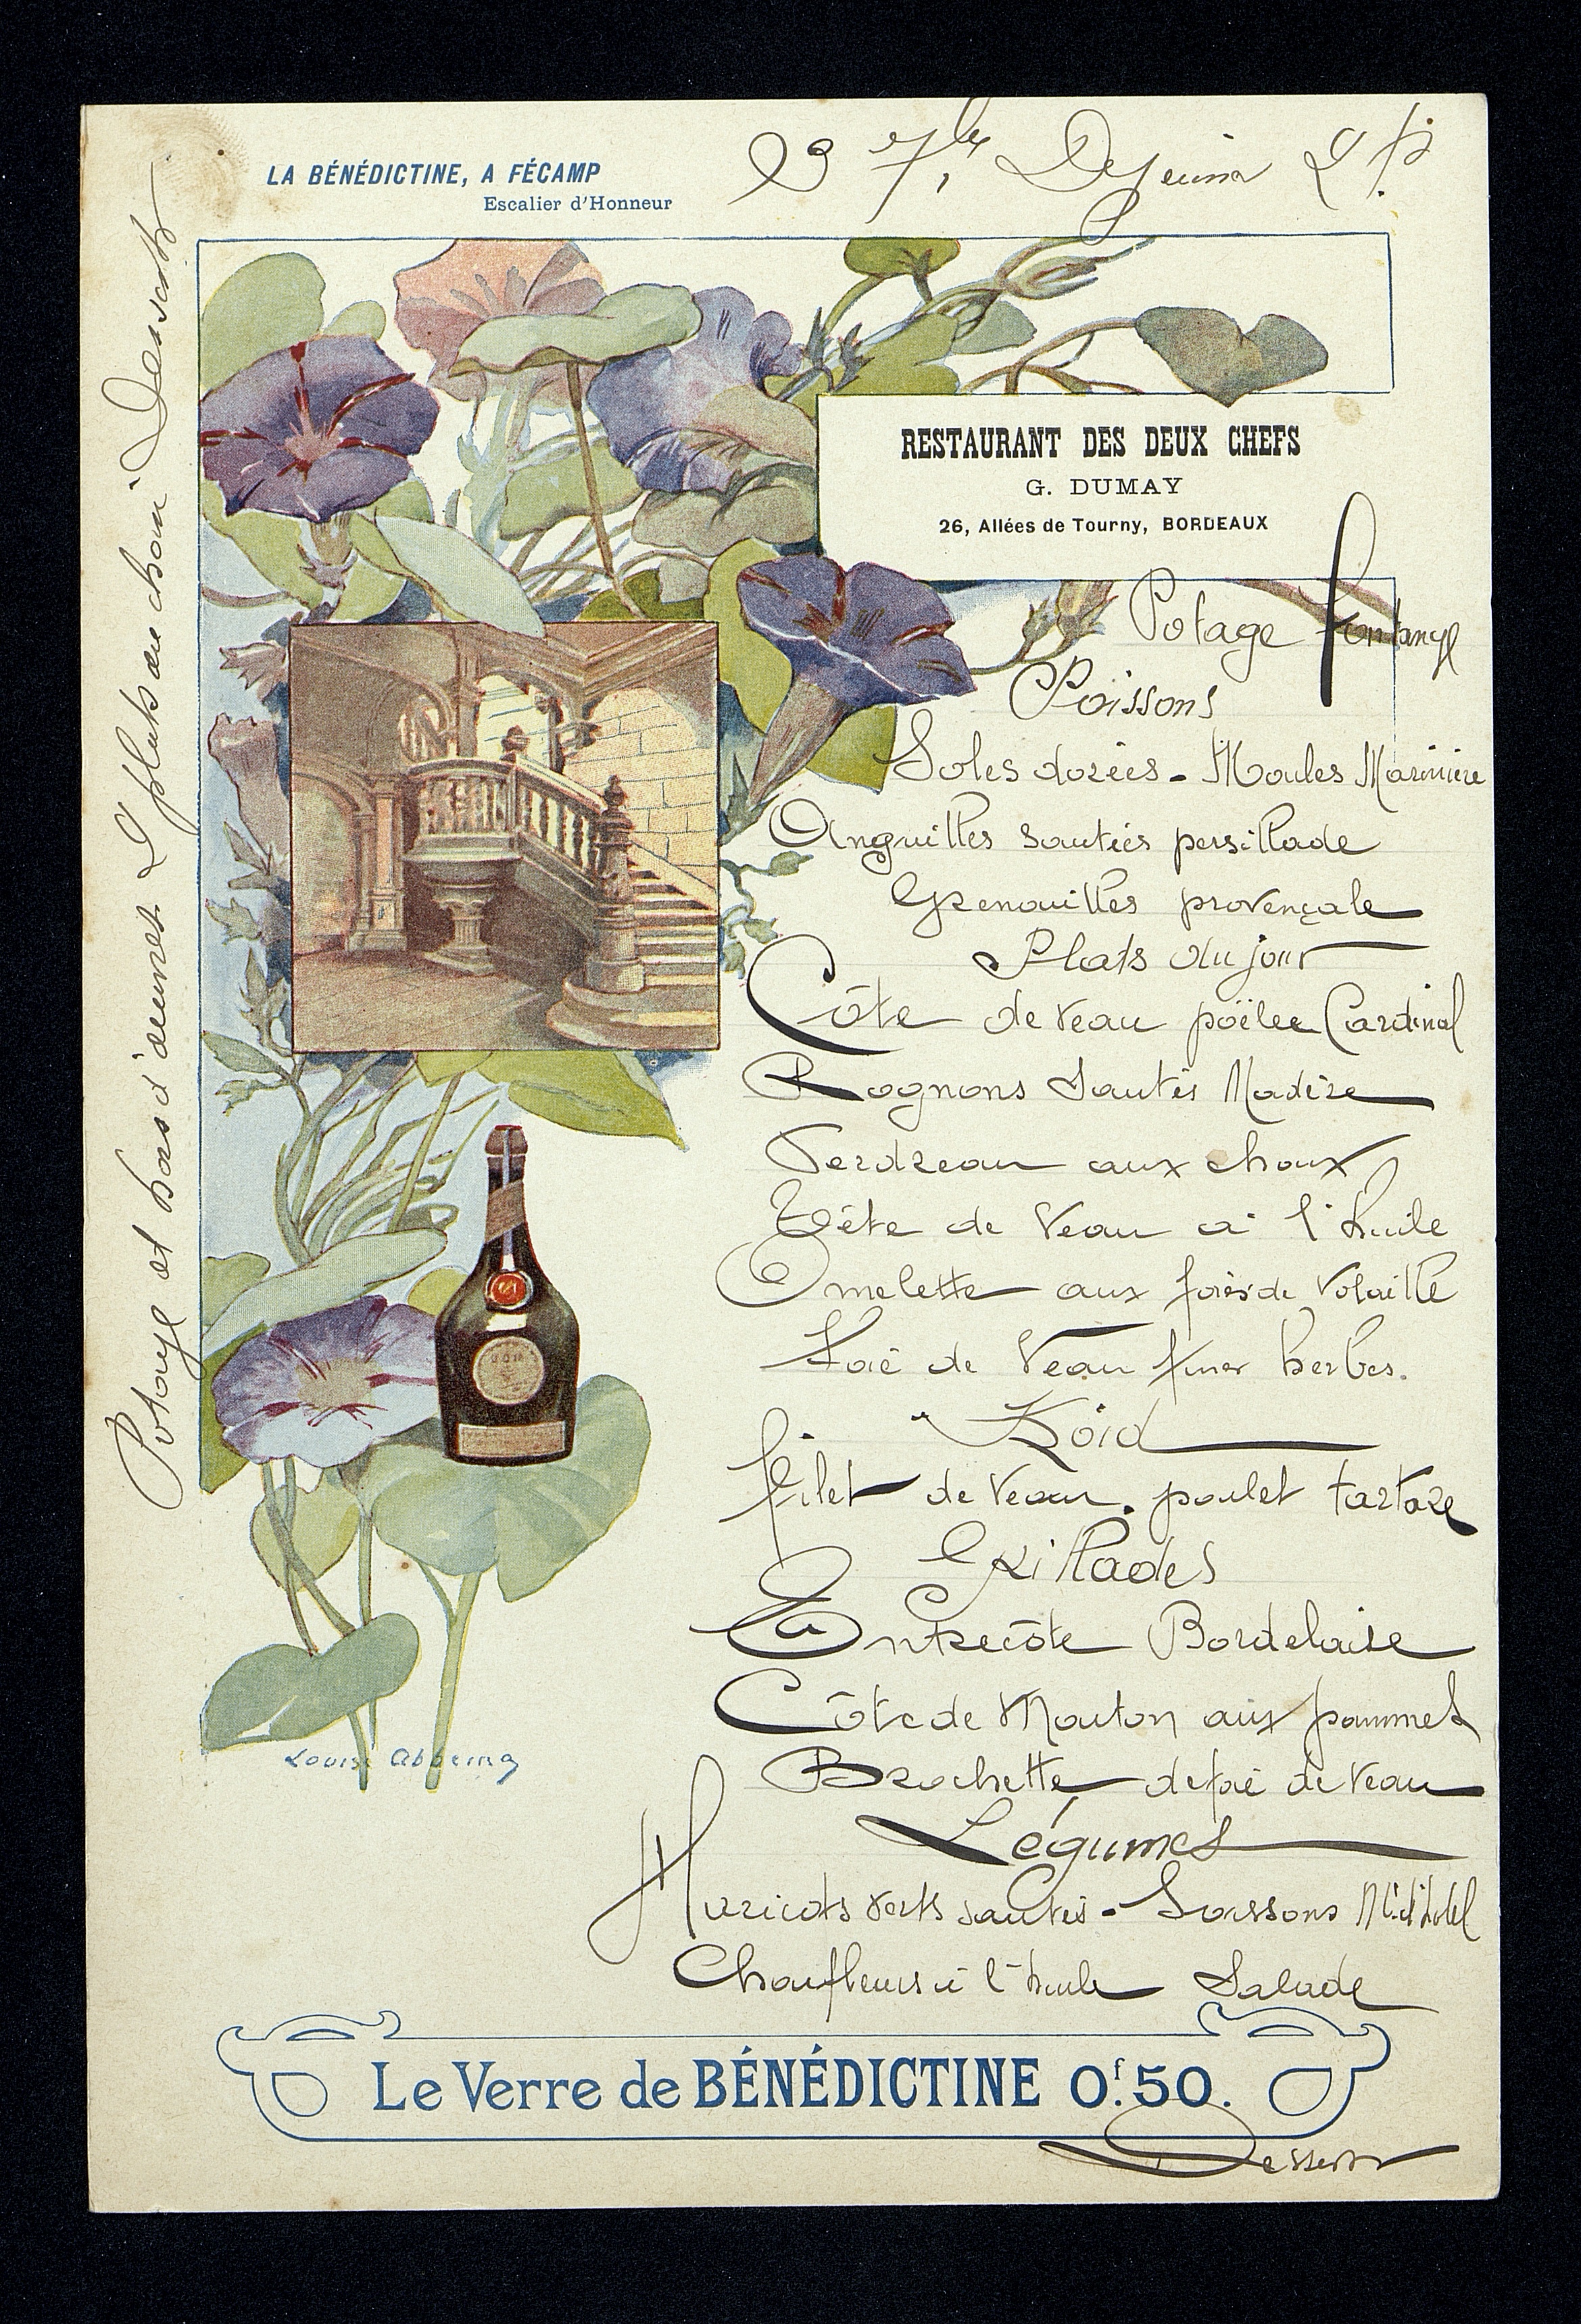 LA BÉNÉDICTINE, A FÉCAMP
Escalier d'Honneur
23 7bre Dejeuner 2f
RESTAURANT DES DEUX CHEFS
G. DUMAY
26, Allées de Tourny, BORDEAUX
Potage fontange
Poissons
Soles dorées - Moules Marinière
Anguilles sautées persillade
Grenouilles provençale
Plats du jour
Côte de veau poëlee Cardinal
Rognons Sautés Madère
Perdreau aux choux
Tête de Veau à l'huile
Omelette aux foies de Volaille
Foie de Veau fines herbes.
Froid
filet de Veau. poulet tartare
Grillades
Entrecôte Bordelaise
Côte de Mouton aux pommes
Brochette de foie de Veau
Légumes
Haricots verts sautés - Soissons Mt d'hotel
Choufleurs à l'huile Salade
Le Verre de BÉNÉDICTINE 0f.50.
Desserts
Potage et hors d'œuvres 2 plats au choix Desserts
Louise Abbema